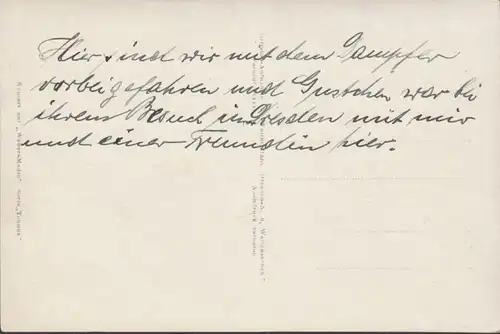 Hier sind wir mit dem Dampfer
vorbeigefahren und Gustchen war bei
ihrem Besuch in Dresden mit mir
und einer Freundin hier.